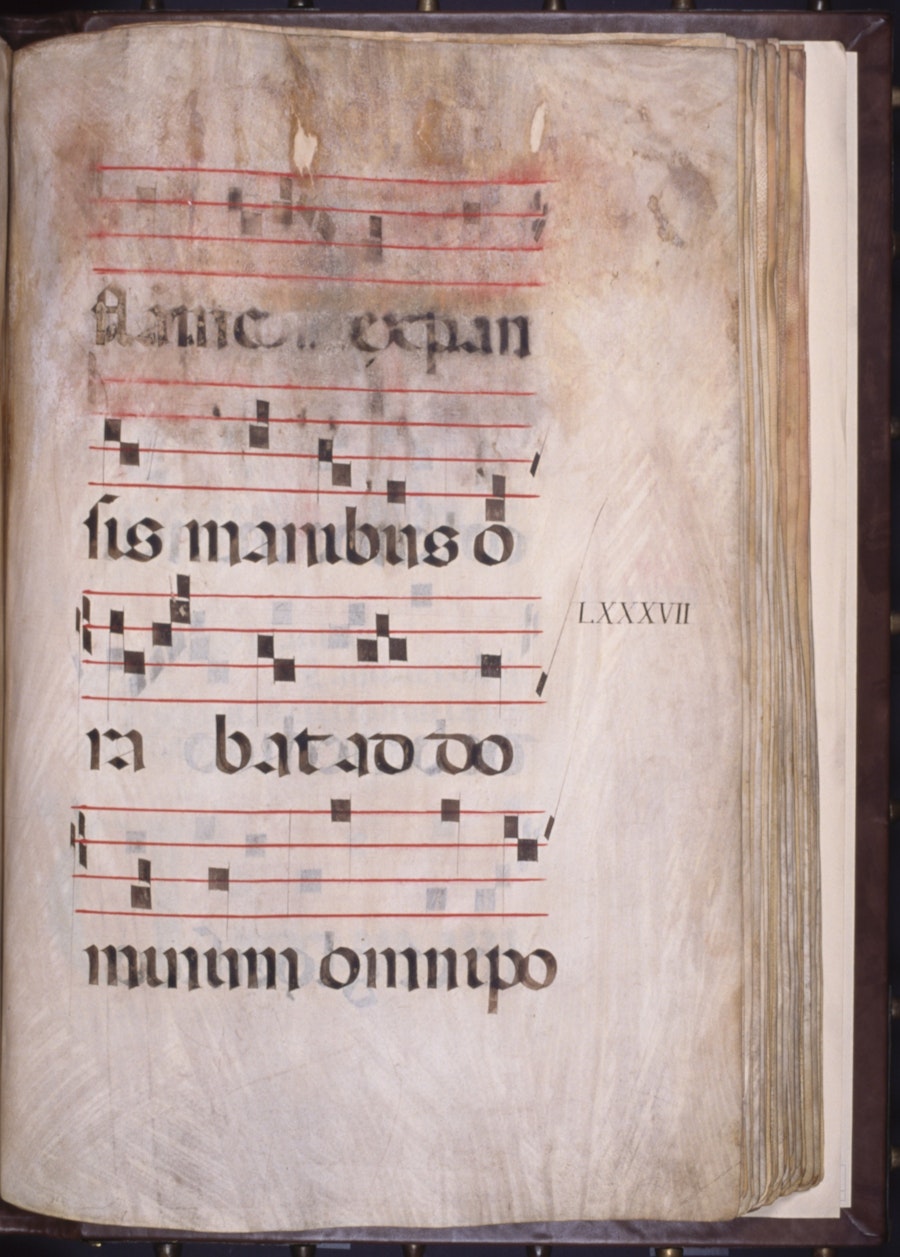 expan
sis manibus o
ra bat ad do
minum omnipo
LXXXVII